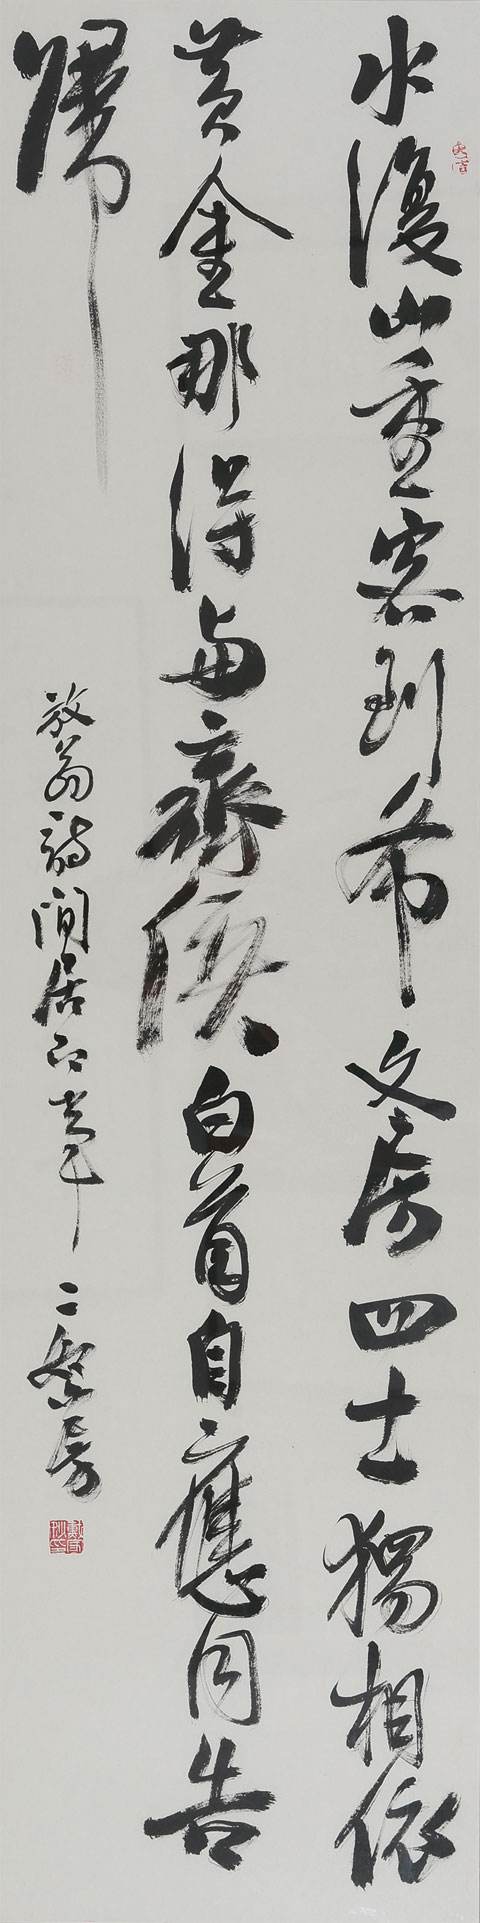 水復山重客到希文房四士獨相依
黃金那得與齊價白首自應同告
歸
放翁詩閒居